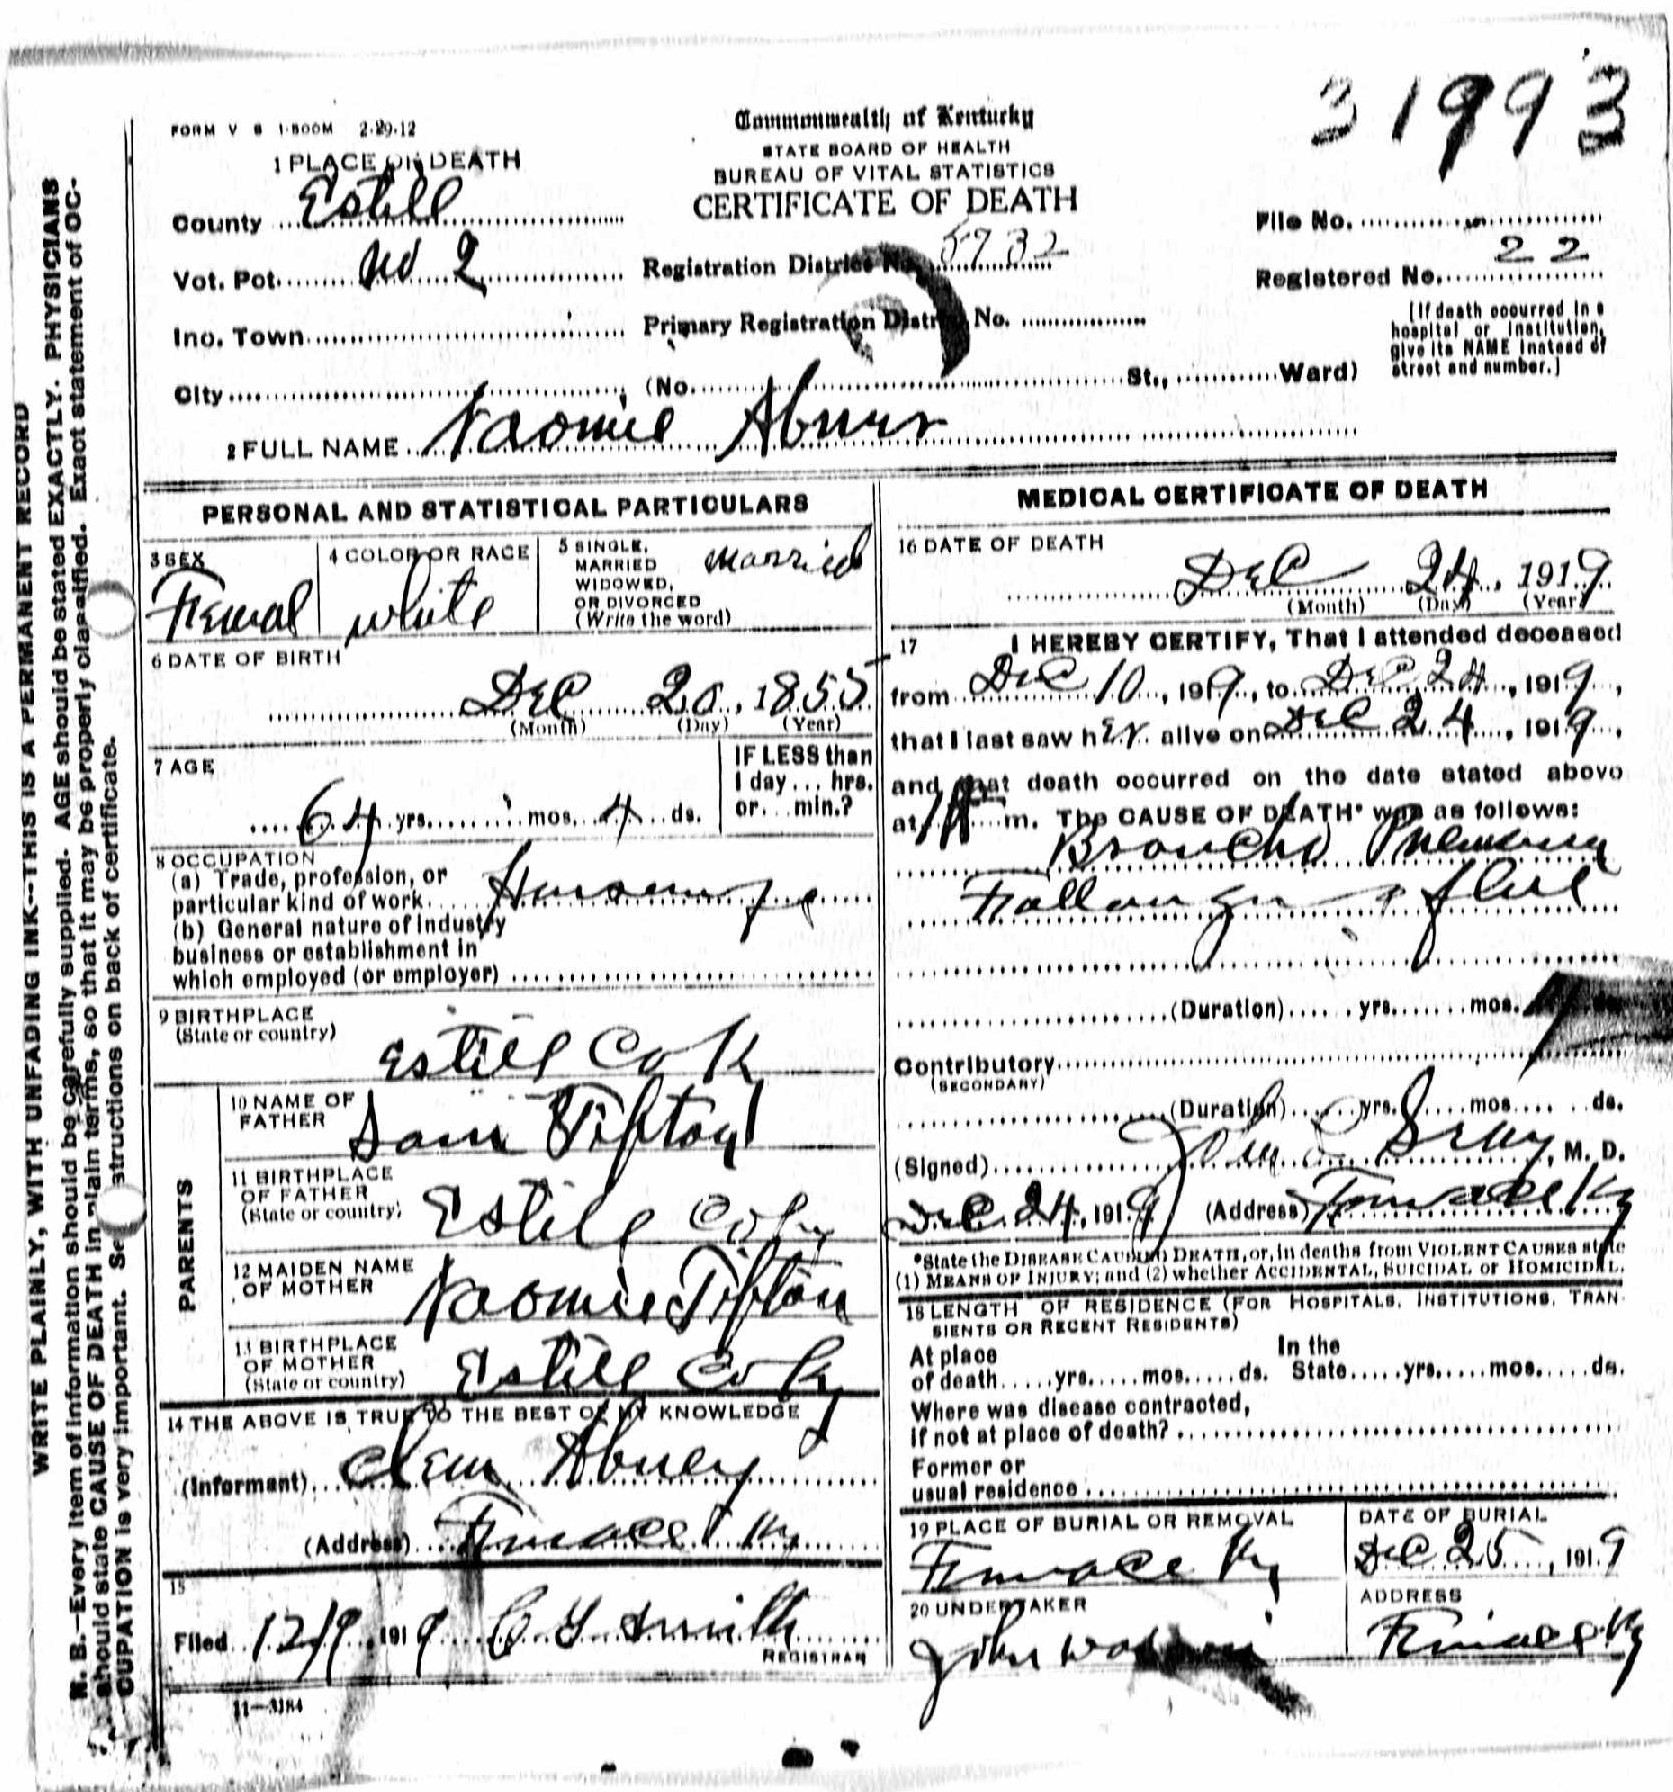 31993
FORM V S 1-500M 2-29-12
Commonwealth of Kentucky
STATE BOARD OF HEALTH
BUREAU OF VITAL STATISTICS
CERTIFICATE OF DEATH
1 PLACE OF DEATH
County Estill
Vot. Pct. No 2
Inc. Town
City
Registration District No. 5732
Primary Registration District No.
(No. St., Ward)
File No.
Registered No. 22
[If death occurred in a
hospital or institution,
give its NAME instead of
street and number.]
2 FULL NAME Naomie Abner
PERSONAL AND STATISTICAL PARTICULARS
3 SEX
Femal
4 COLOR OR RACE
white
5 SINGLE,
MARRIED
WIDOWED,
OR DIVORCED
(Write the word)
married
6 DATE OF BIRTH
Dec 20, 1855
(Month) (Day) (Year)
7 AGE
64 yrs. mos. 4 ds.
IF LESS than
1 day ... hrs.
or ... min.?
8 OCCUPATION
(a) Trade, profession, or
particular kind of work
(b) General nature of industry
business or establishment in
which employed (or employer)
9 BIRTHPLACE
(State or country)
Estill Co K
PARENTS
10 NAME OF
FATHER
Sam Tipton
11 BIRTHPLACE
OF FATHER
(State or country)
Estill Co Ky
12 MAIDEN NAME
OF MOTHER
Naomie Tipton
13 BIRTHPLACE
OF MOTHER
(State or country)
Estill Co Ky
14 THE ABOVE IS TRUE TO THE BEST OF MY KNOWLEDGE
(Informant) Clem Abney
(Address) Furnace Ky
15
Filed 12/9, 1919 C G Smith
REGISTRAR
11-3184
MEDICAL CERTIFICATE OF DEATH
16 DATE OF DEATH
Dec 24, 1919
(Month) (Day) (Year)
17 I HEREBY CERTIFY, That I attended deceased
from Dec 10, 1919, to Dec 24, 1919,
that I last saw her alive on Dec 24, 1919,
and that death occurred on the date stated above
at m. The CAUSE OF DEATH* was as follows:
Broncho
flue
(Duration) yrs. mos.
Contributory
(SECONDARY)
(Duration) yrs. mos. ds.
(Signed) John Gray, M. D.
Dec 24, 1919 (Address) Furnace Ky
*State the DISEASE CAUSING DEATH, or, in deaths from VIOLENT CAUSES state
(1) MEANS OF INJURY; and (2) whether ACCIDENTAL, SUICIDAL or HOMICIDAL.
18 LENGTH OF RESIDENCE (FOR HOSPITALS, INSTITUTIONS, TRAN-
SIENTS OR RECENT RESIDENTS)
At place
of death yrs. mos. ds.
In the
State yrs. mos. ds.
Where was disease contracted,
if not at place of death?
Former or
usual residence
19 PLACE OF BURIAL OR REMOVAL
Furnace Ky
DATE OF BURIAL
Dec 25, 1919
20 UNDERTAKER
John
ADDRESS
Furnace Ky
WRITE PLAINLY, WITH UNFADING INK--THIS IS A PERMANENT RECORD
N. B.--Every item of information should be carefully supplied. AGE should be stated EXACTLY. PHYSICIANS
should state CAUSE OF DEATH in plain terms, so that it may be properly classified. Exact statement of OC-
CUPATION is very important. See instructions on back of certificate.